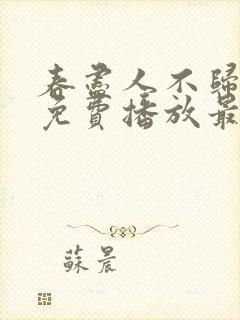 春盡人不歸
免費播放最
蘇晨